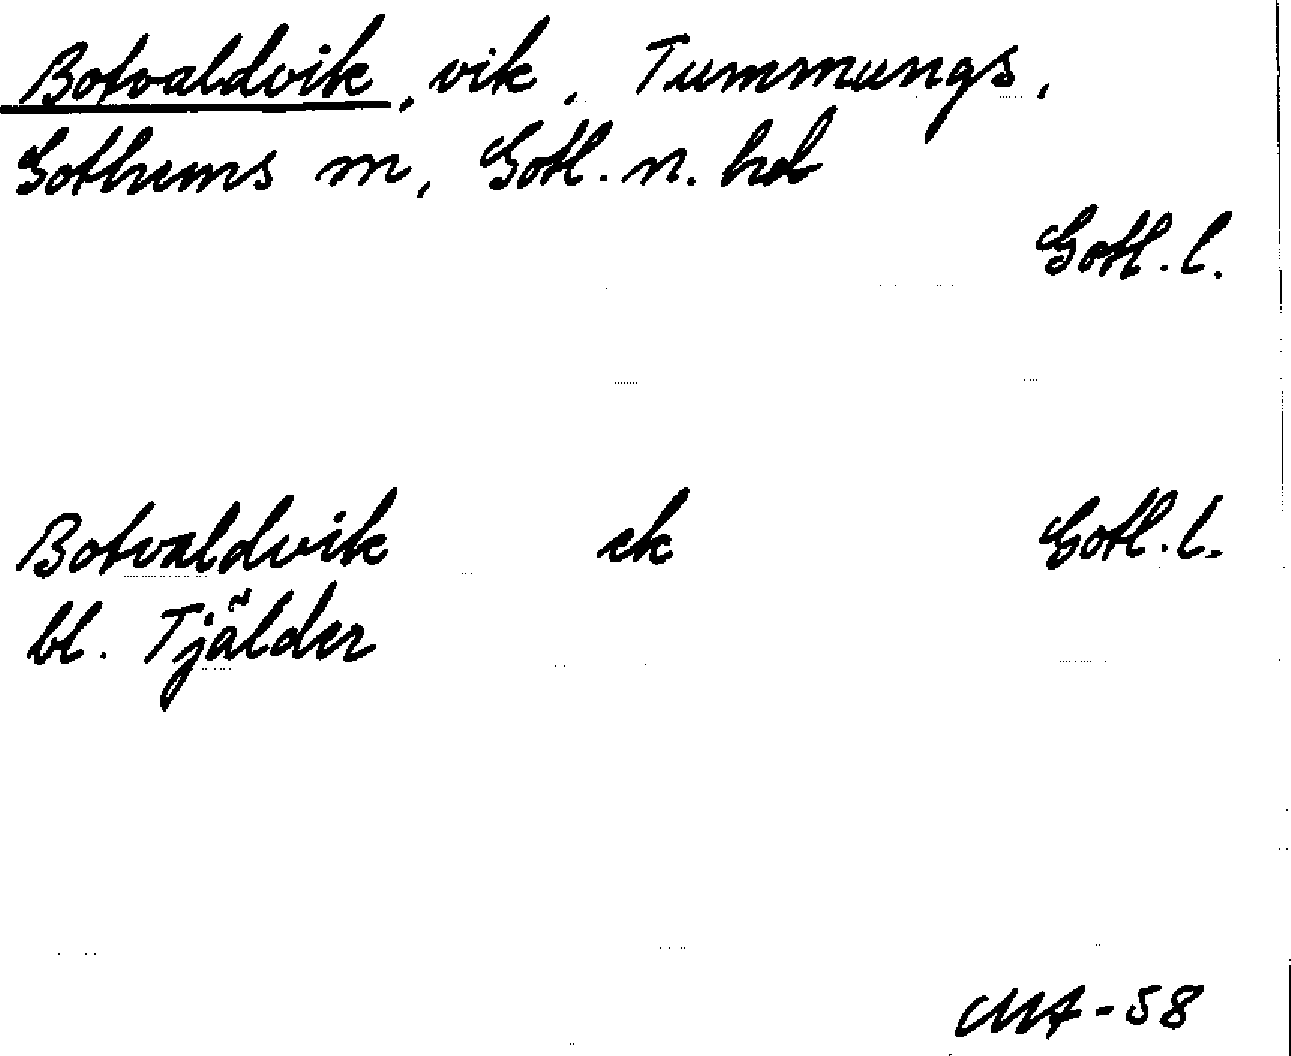 Botvaldvik, vik, Tummungs,
Gothems m, Gotl. n. hd
Gotl. l.
Botvaldvik ek Gotl. l.
bl. Tjälder
MA-58